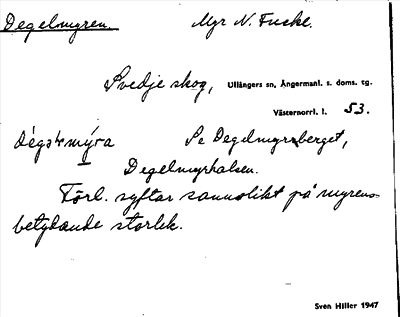 Degelmyren. Myr N. Fuske.
Svedje skog, Ullångers sn, Ångermanl. s. doms. tg.
Västernorrl. l. 53.
Se Degelmyrsberget,
Degelmyrhalsen.
Förl. syftar sannolikt på myrens
betydande storlek.
Sven Hiller 1947